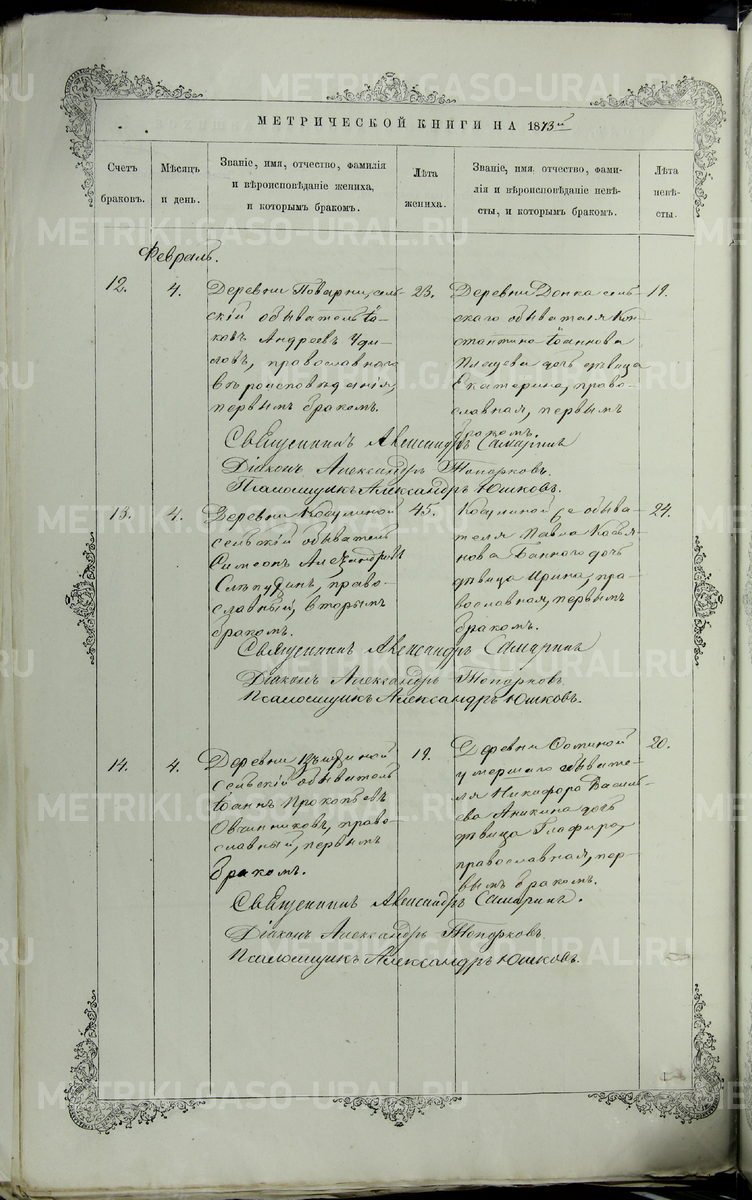 МЕТРИЧЕСКОЙ КНИГИ НА 1873й
Счетъ браковъ.
Мѣсяцъ и день.
Званіе, имя, отчество, фамилія
и вѣроисповѣданіе жениха,
и которымъ бракомъ.
Лѣта жениха.
Званіе, имя, отчество, фами-
лія и вѣроисповѣданіе невѣ-
сты, и которымъ бракомъ.
Лѣта невѣ-
сты.
Февраль.
12.
4.
Деревни Поварни, сель-
скій обыватель Іа-
ковъ Андреевъ
православнаго
вѣроисповѣданія,
первымъ бракомъ.
23.
Деревни сель-
скаго обывателя Кон-
стантина Іоаннова
дочь дѣвица
Екатерина, право-
славная, первымъ
бракомъ.
19.
Священникъ Александръ Самаринъ
Діаконъ Александръ Топорковъ.
Псаломщикъ Александръ Юшковъ.
13.
4.
Деревни
сельскій обыватель
Симеонъ Александровъ
право-
славный, вторымъ
бракомъ.
45.
обыва-
теля Павла Косьи-
нова Банного дочь
дѣвица Ирина, пра-
вославная, первымъ
бракомъ.
24.
Священникъ Александръ Самаринъ
Діаконъ Александръ Топорковъ
Псаломщикъ Александръ Юшковъ.
14.
4.
Деревни
сельскій обыватель
Іоаннъ Прокопьевъ
Овчинниковъ, право-
славный, первымъ
бракомъ.
19.
Деревни Фоминой
умершаго обывате-
ля Никифора Василь-
ева Аникина дочь
дѣвица Глафира,
православная, пер-
вымъ бракомъ.
20.
Священникъ Александръ Самаринъ.
Діаконъ Александръ Топорковъ.
Псаломщикъ Александръ Юшковъ.
METRIKI.GASO-URAL.RU